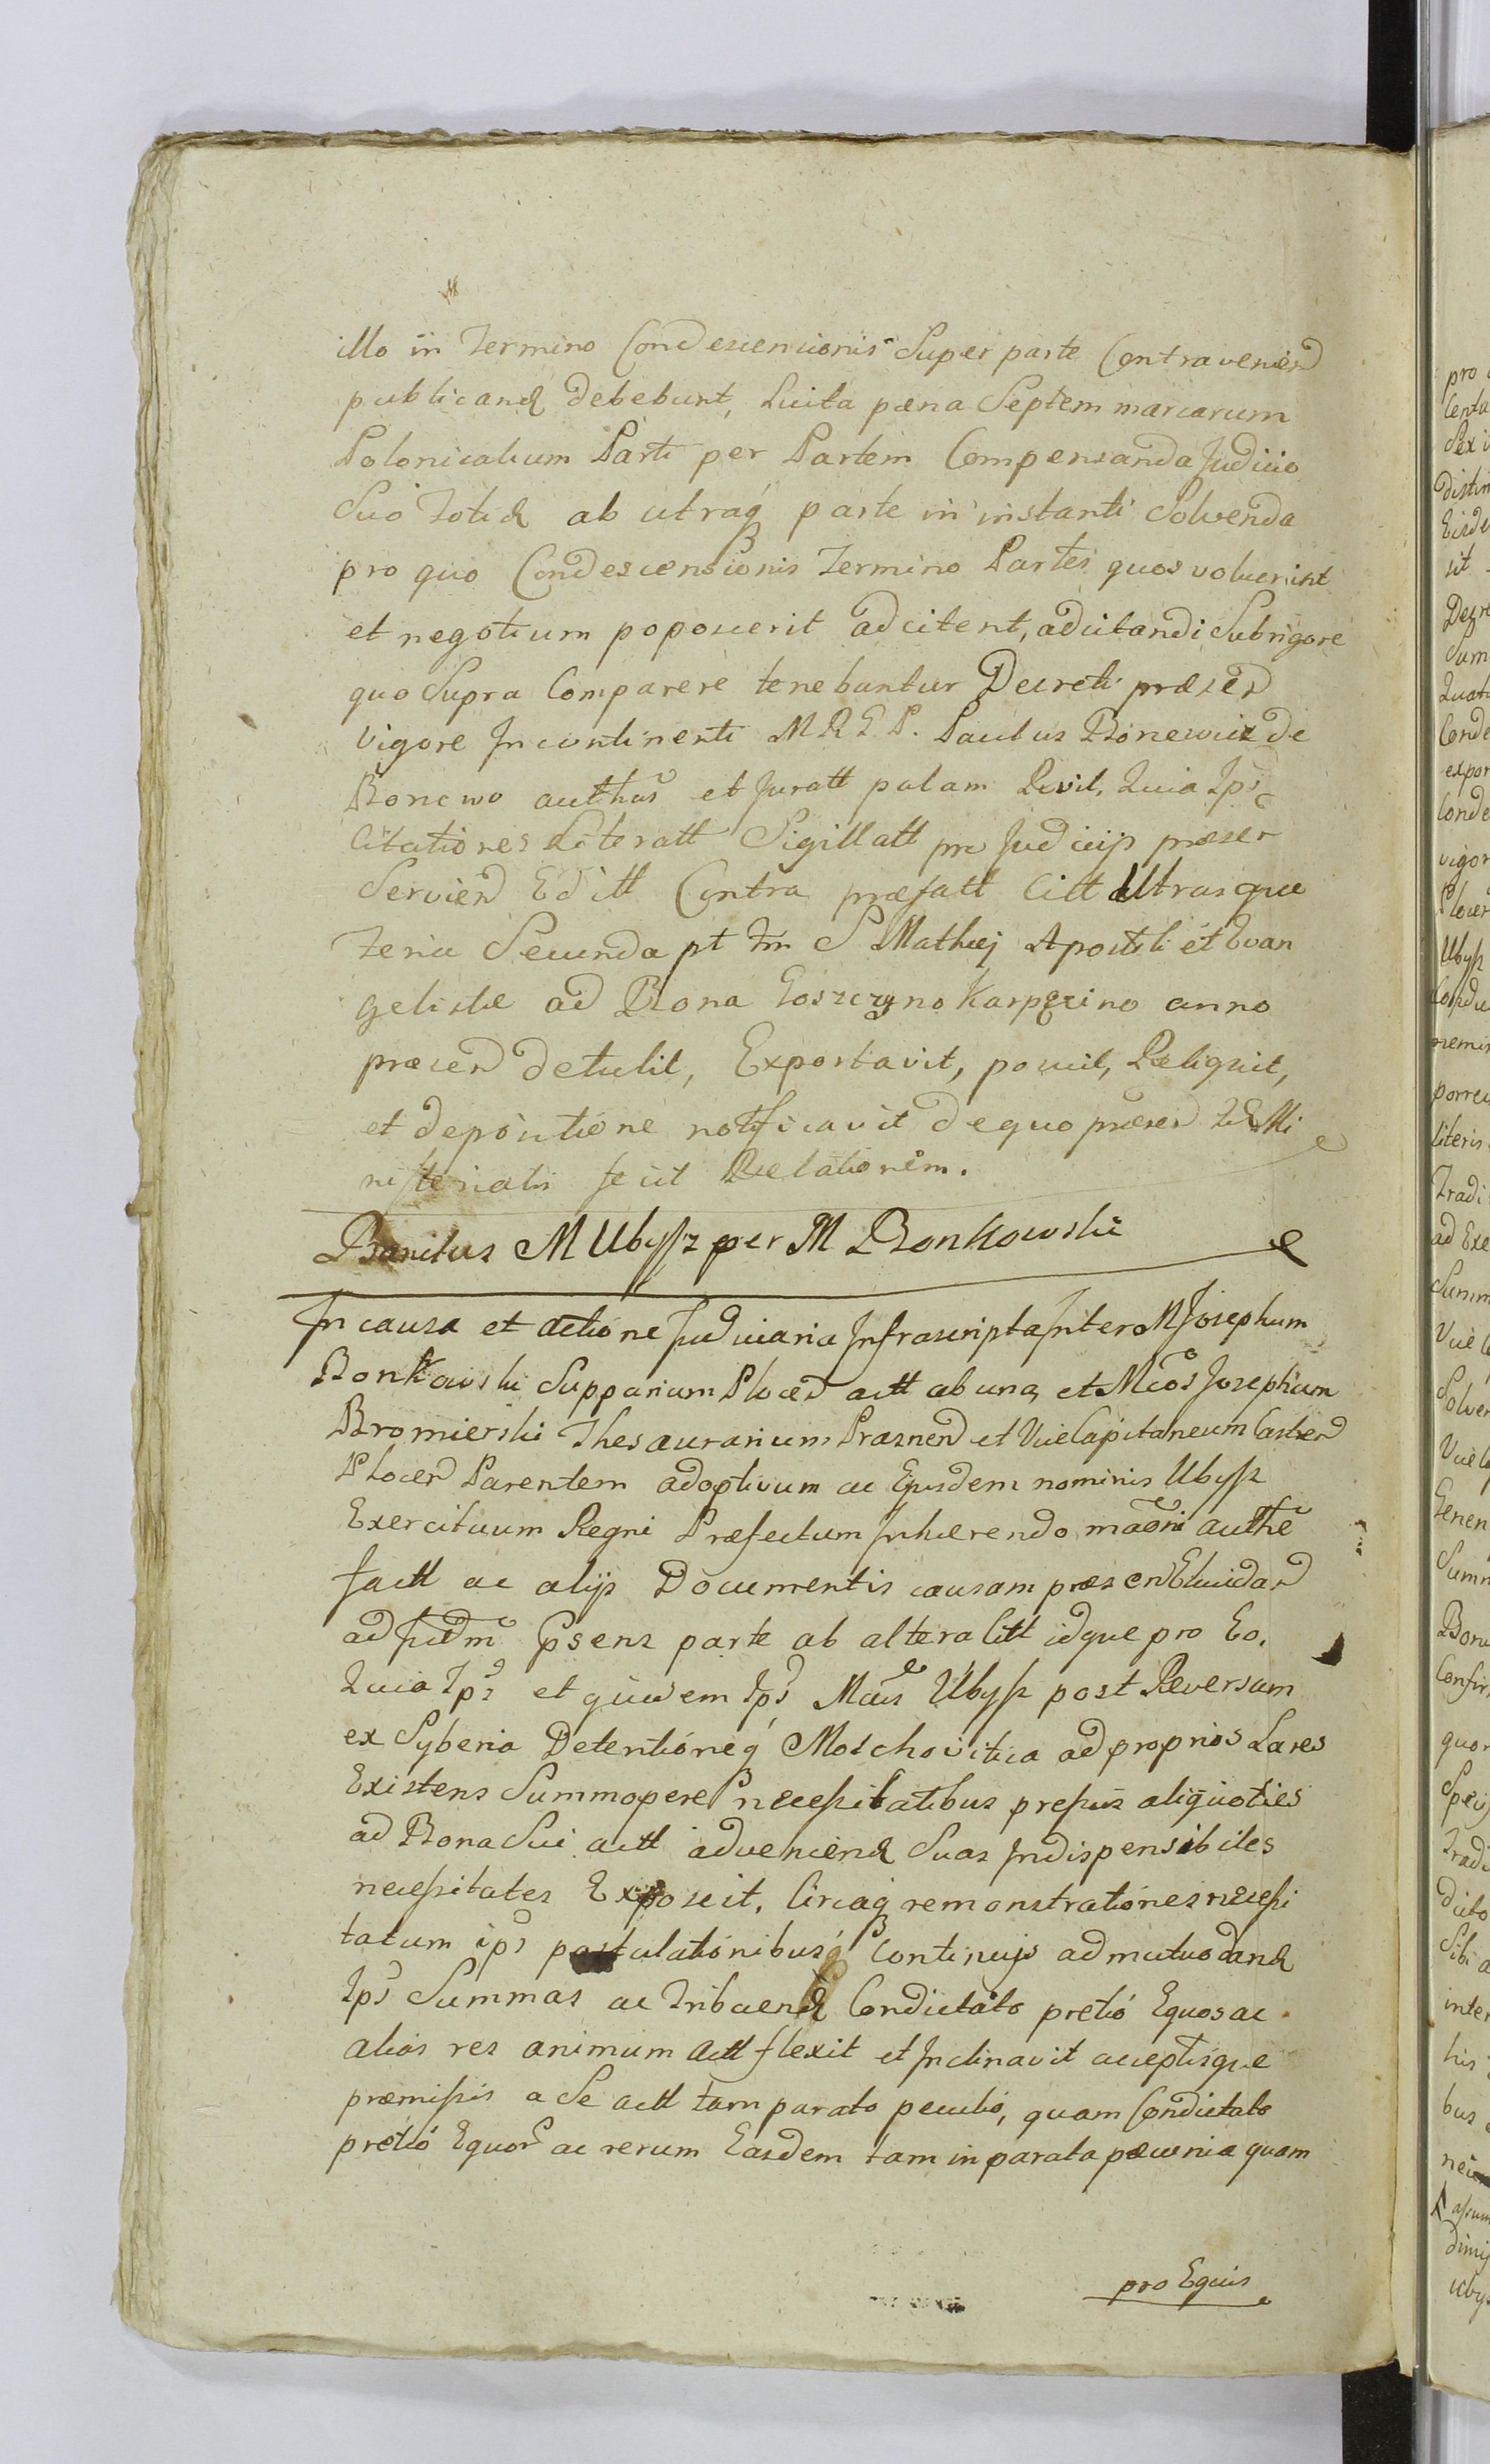 illo in Termino Condescensionis Super parte Contravenien
publicand debebunt, Luita pæna Septem marcarum
Polonicalium Parti per Partem Compensanda Judicio
Suo Totid ab utraq parte in instanti Solvenda
pro quo Condescensionis Termino Partes quos voluerint
et negotium poposcerit adcitent, adcitandi Sub rigore
quo Supra Comparere tenebuntur Decreti præsen
vigore Incontinenti M R G P. Paulus Bonewicz de
Bonewo authus et Juratt palam Revit, Quia Ips
Citationes Literatt Sigillatt pro Judicijs præsen
Servien Editt Contra præfatt Citt Utrasque
Feria Secunda pt fm S Mathæj Apostoli et Evan
gelistæ ad Bona Goszczyno Karpęzino anno
præsen detulit, Exportavit, posuit, Reliquit,
et depositione notificavit de quo præsen Mi
nisterialis fecit Relationem.
Banitus M Ubysz per M Bonkowski
In causa et actione Judiciaria Infrascripta Inter M Josephum
Bonkowski Supparium Plocen actt ab una, et Mcos Josephum
Bromierski Thesaurarium Prasnen et Vice Capitaneum Castren
Plocen Parentem adoptivum ac Ejusdem nominis Ubysz
Exercituum Regni Præfectum Inhærendo maoni authe
factt ac alijs Documentis causam præsen Elucidan
ad Judm Psens parte ab altera Citt idque pro Eo.
Quia Ips et quidem Ips Mcus Ubysz post Reversam
ex Syberia Detentioneq Moschovitica ad proprios Lares
Existens Summopere necessitatibus pressus aliquoties
ad Bona Sui actt adveniend Suas Indispensibiles
necessitates Exposcit, Circaq remonstrationes necessi
tatum ips postulationibusq Continuis ad mutuo dand
Ips Summas ac Tribuend Condictato pretio Equos ac
alias res animum actt flexit et Inclinavit acceptisque
præmissis a Se actt tam parato peculio, quam Condictato
pretio Equor ac rerum Easdem tam in parata pæcunia quam
pro Equis